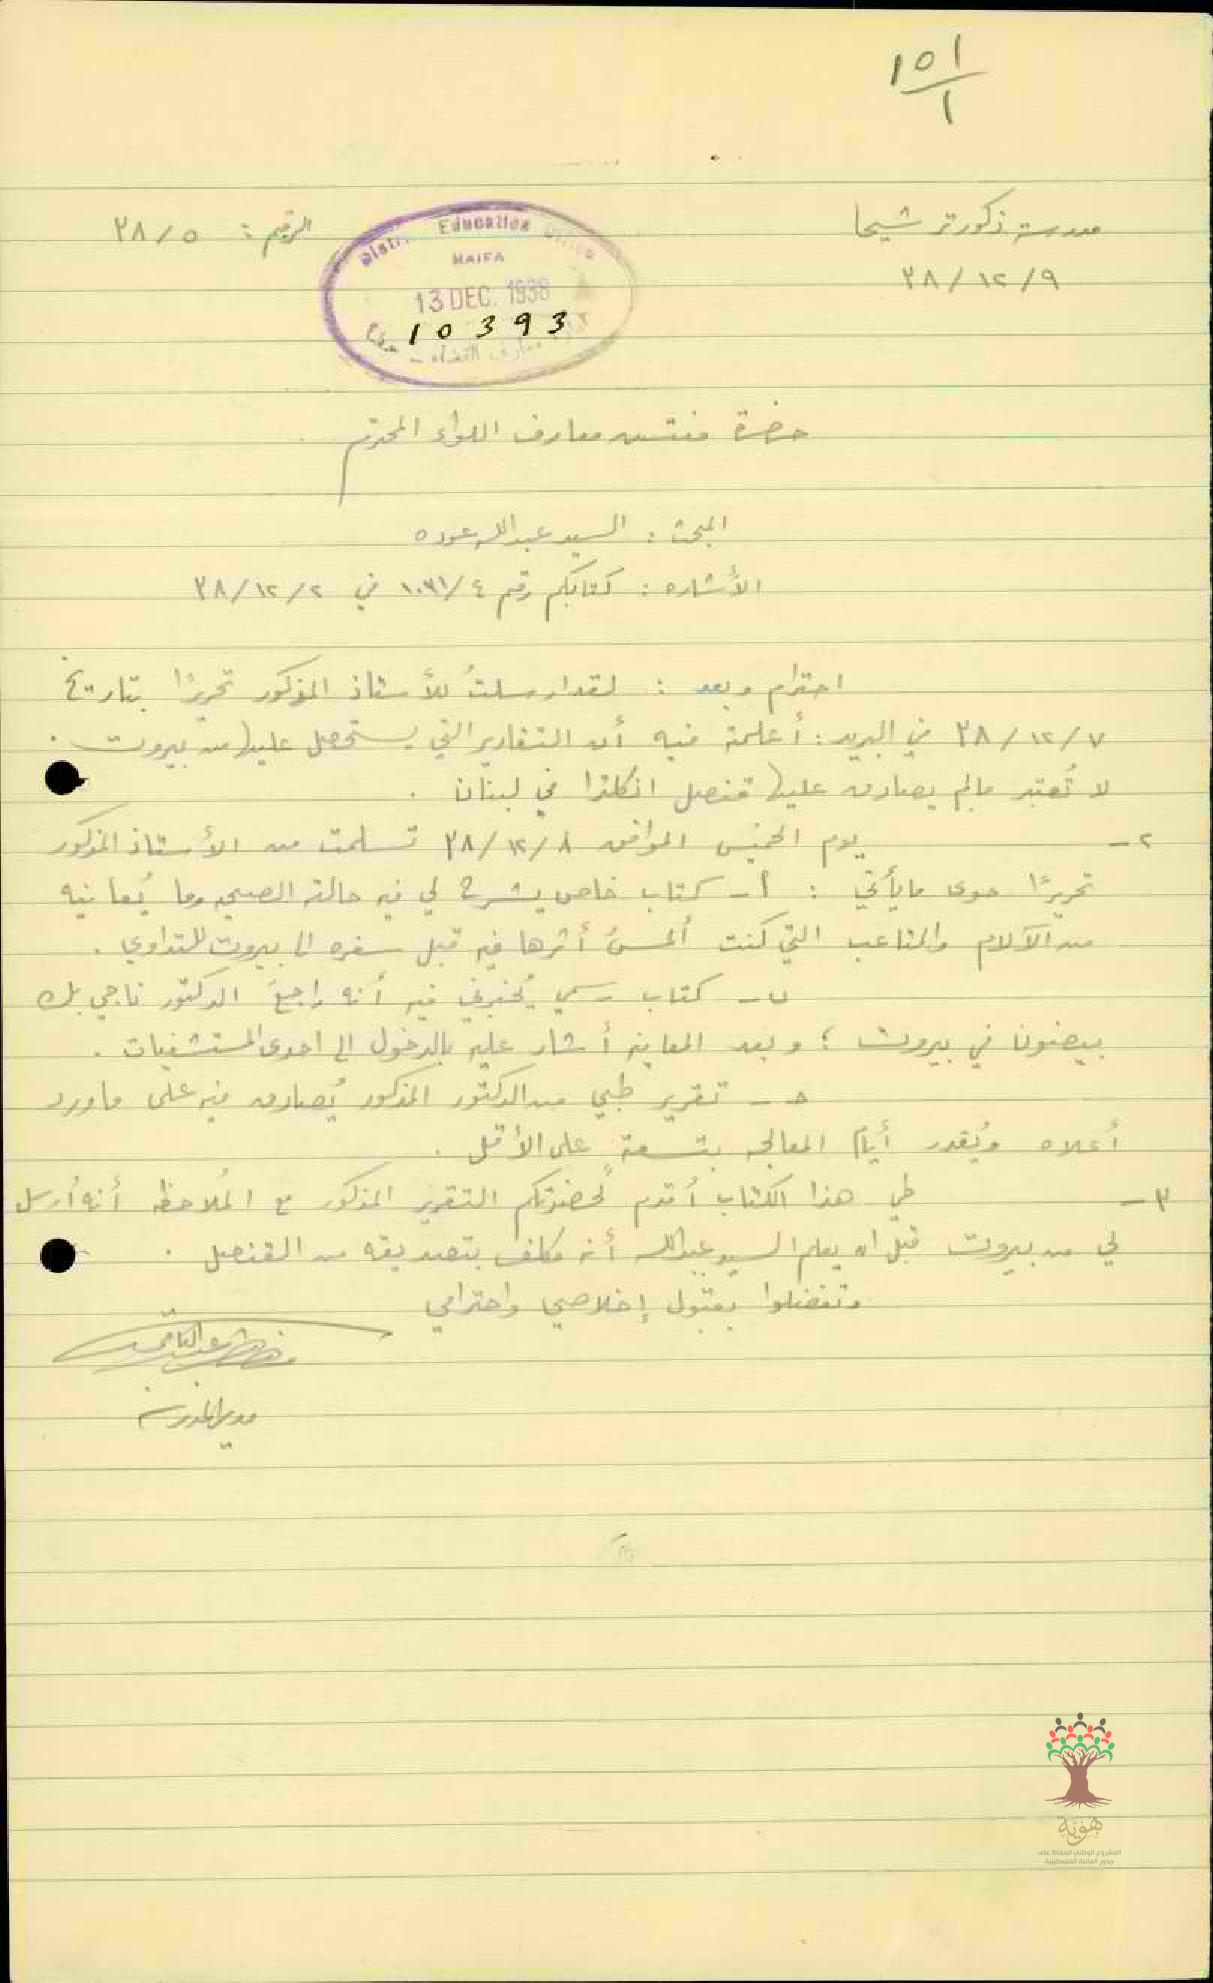 ١٥١
١
مدرسة ذكور ترشيحا
الرقم: ٣٨/٥
٣٨/١٢/٩
District Education Office
HAIFA
13 DEC. 1938
10393
معارف القضاء - حيفا
حضرة مفتش معارف اللواء المحترم
المبحث: السيد عبدالله عوده
الأشاره: كتابكم رقم في ٣٨/١٢/٢
احترام وبعد: لقد ارسلتُ للأستاذ المذكور تحريرًا بتاريخ
٣٨/١٢/٧ في البريد: أعلمته فيه أن التقارير التي يستحصل عليها من بيروت.
لا تُعتبر مالم يصادق عليها قنصل انكلترا في لبنان.
٢- يوم الخميس الموافق ٣٨/١٢/٨ تسلمت من الأستاذ المذكور
تحريرًا حوى مايأتي: أ- كتاب خاص يشرح لي فيه حالته الصحيه وما يُعانيه
من الآلام والمتاعب التي كنت ألمسُ أثرها فيه قبل سفره الى بيروت للتداوي.
ب- كتاب رسمي يُخبرني فيه أنه راجعَ الدكتور ناجي بك
بيضون في بيروت؛ وبعد المعاينه أشار عليه بالدخول الى احدى المستشفيات.
حـ- تقرير طبي من الدكتور المذكور يُصادق فيه على ماورد
أعلاه ويُقدر أيام المعالجه بتسعة على الأقل.
٣- طي هذا الكتاب أقدم لحضرتكم التقرير المذكور مع المُلاحظه أنه أرسل
لي من بيروت قبل ان يعلم السيد عبدالله أنه مكلف بتصديقه من القنصل.
وتفضلوا بقبول إخلاصي واحترامي
مدير المدرسة
هُويَّة
المشروع الوطني للحفاظ على
جذور العائلة الفلسطينية